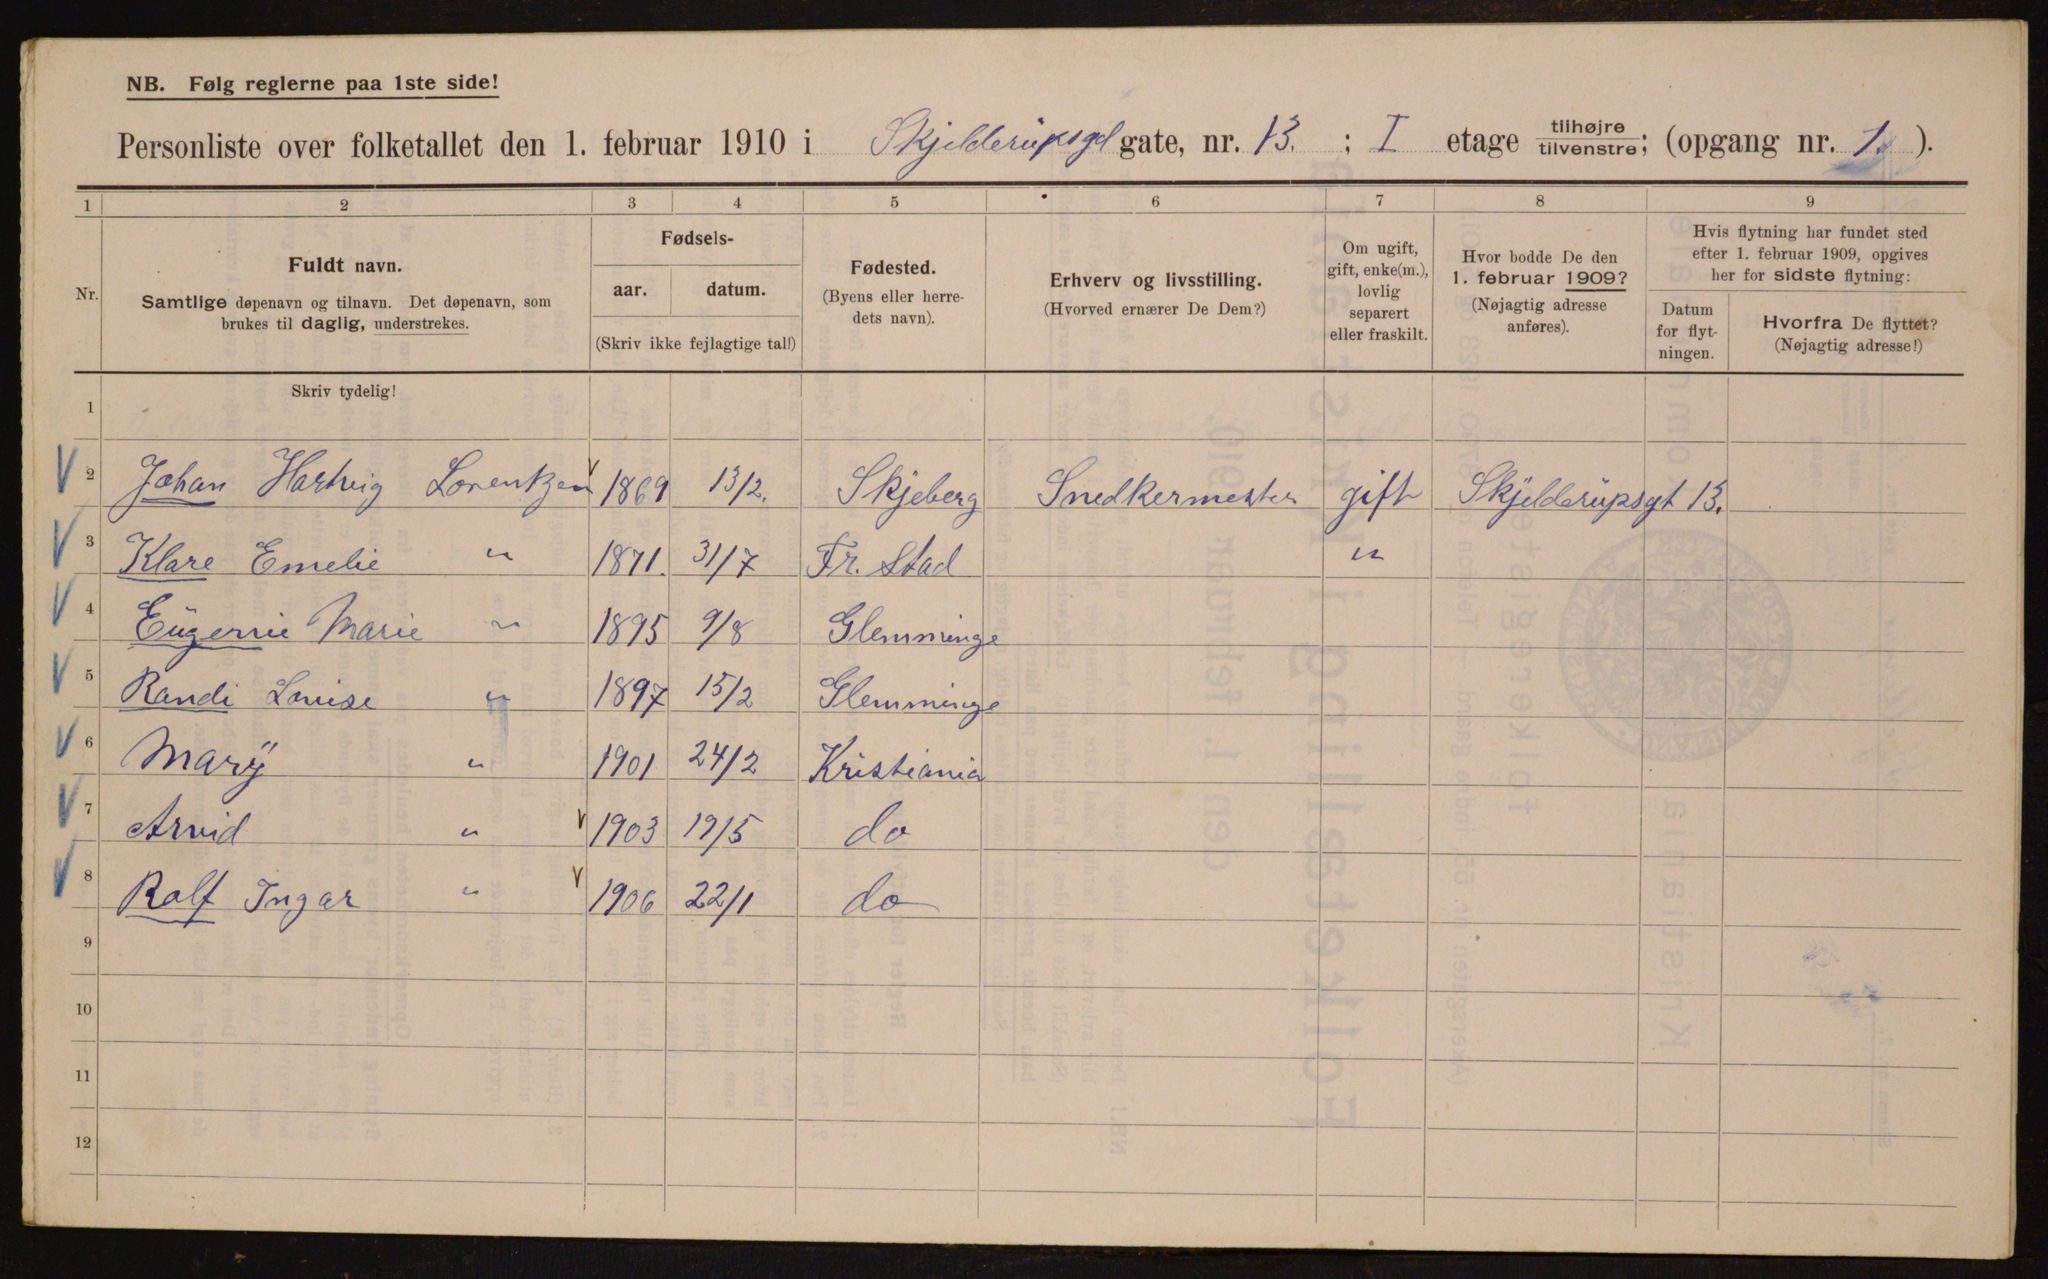 NB. Følg reglerne paa 1ste side!
Personliste over folketallet den 1. februar 1910 i Skjelderupsgt gate, nr. 13. ; I etage tilhøjre tilvenstre; (opgang nr. 1. ).
1 2 3 4 5 6 7 8 9
Nr.
Fuldt navn.
Samtlige døpenavn og tilnavn. Det døpenavn, som
brukes til daglig, understrekes.
Fødsels-
aar. datum.
(Skriv ikke fejlagtige tal!)
Fødested.
(Byens eller herre-
dets navn).
Erhverv og livsstilling.
(Hvorved ernærer De Dem?)
Om ugift,
gift, enke(m.),
lovlig
separert
eller fraskilt.
Hvor bodde De den
1. februar 1909?
(Nøjagtig adresse
anføres).
Hvis flytning har fundet sted
efter 1. februar 1909, opgives
her for sidste flytning:
Datum
for flyt-
ningen.
Hvorfra De flyttet?
(Nøjagtig adresse!)
Skriv tydelig!
1
2 Johan Hartvig Lorentzen 1869 13/2. Skjeberg Snedkermester gift Skjelderupsgt 13.
3 Klare Emelie " 1871. 31/7 Fr. Stad "
4 Eügenie Marie " 1895 9/8 Glemminge
5 Randi Louise " 1897 15/2 Glemminge
6 Marÿ " 1901 24/2 Kristiania
7 Arvid " 1903 19/5 do
8 Rolf Ingar " 1906 22/1 do
9
10
11
12